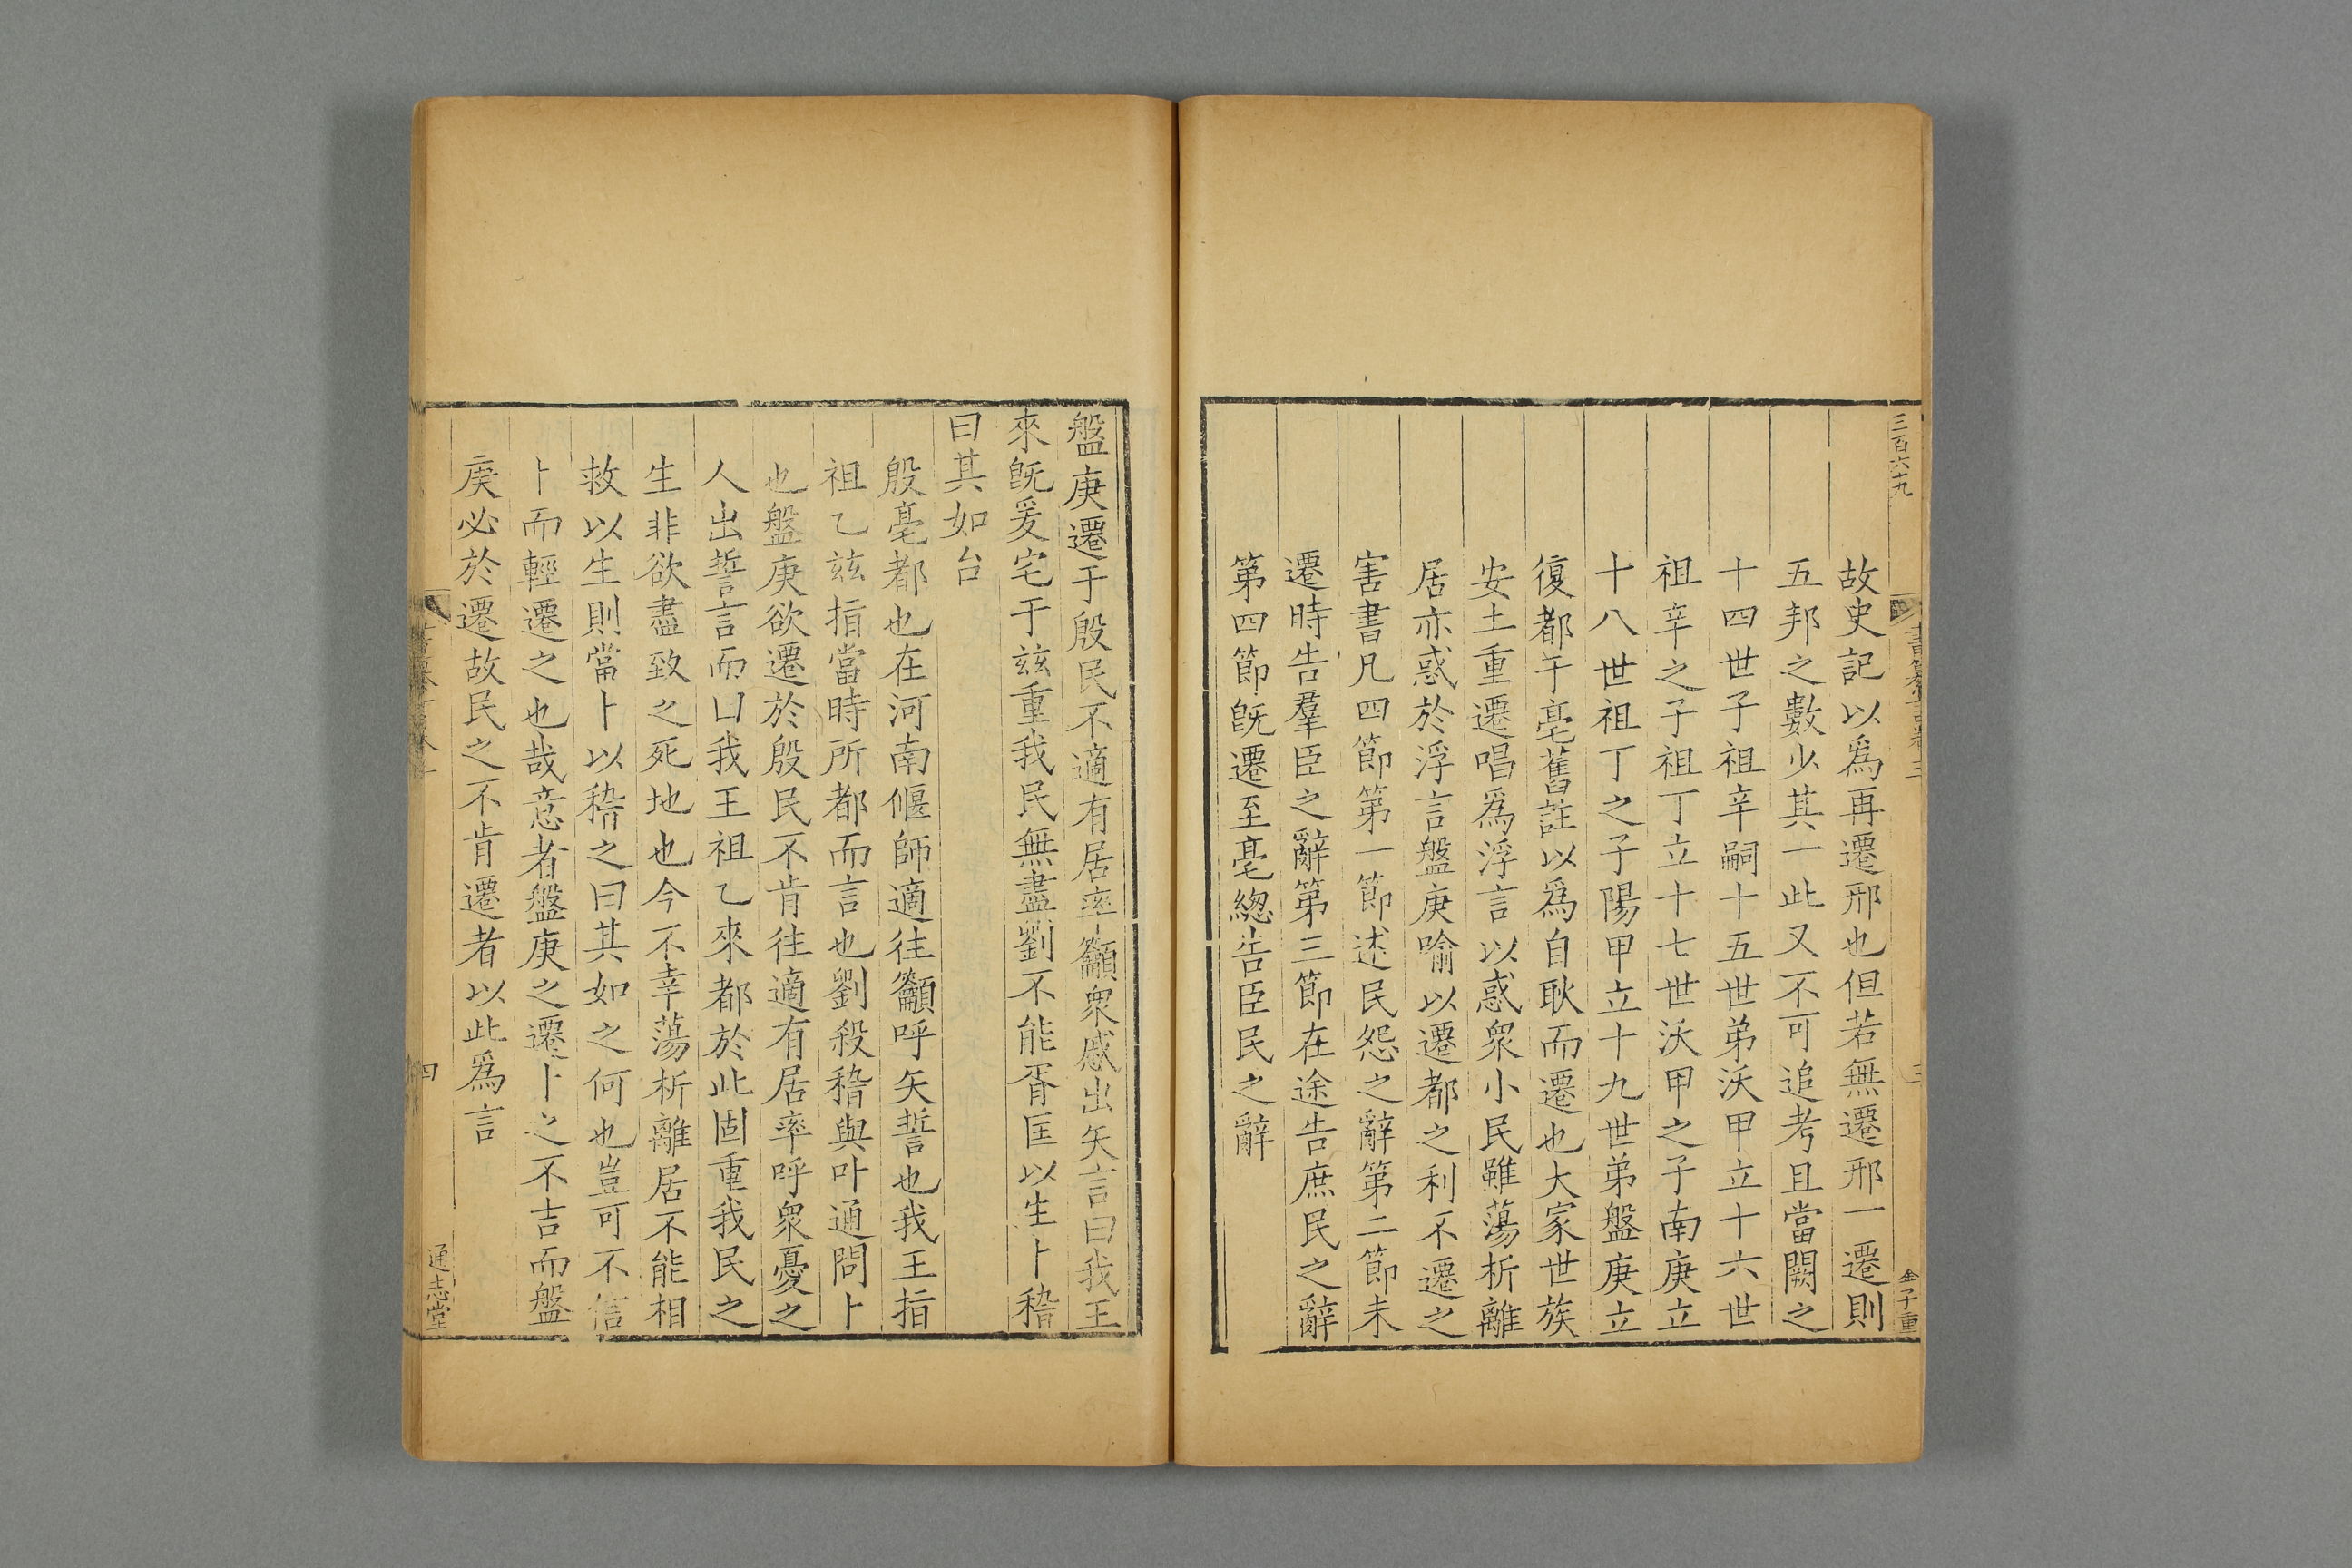 三百六十九
書纂言卷三
三
金子重
故史記以爲再遷邢也但若無遷邢一遷則
五邦之數少其一此又不可追考且當闕之
十四世子祖辛嗣十五世弟沃甲立十六世
祖辛之子祖丁立十七世沃甲之子南庚立
十八世祖丁之子陽甲立十九世弟盤庚立
復都于亳舊註以爲自耿而遷也大家世族
安土重遷唱爲浮言以惑衆小民雖蕩析離
居亦惑於浮言盤庚喻以遷都之利不遷之
害書凡四節第一節述民怨之辭第二節未
遷時告羣臣之辭第三節在途告庶民之辭
第四節旣遷至亳緫告臣民之辭
盤庚遷于殷民不適有居率籲衆慼出矢言曰我王
來旣爰宅于兹重我民無盡劉不能胥匡以生卜稽
曰其如台
殷亳都也在河南偃師適往籲呼矢誓也我王指
祖乙兹指當時所都而言也劉殺稽與卟通問卜
也盤庚欲遷於殷民不肯往適有居率呼衆憂之
人出誓言而曰我王祖乙來都於此固重我民之
生非欲盡致之死地也今不幸蕩析離居不能相
救以生則當卜以稽之曰其如之何也豈可不信
卜而輕遷之也哉意者盤庚之遷卜之不吉而盤
庚必於遷故民之不肯遷者以此爲言
四
通志堂